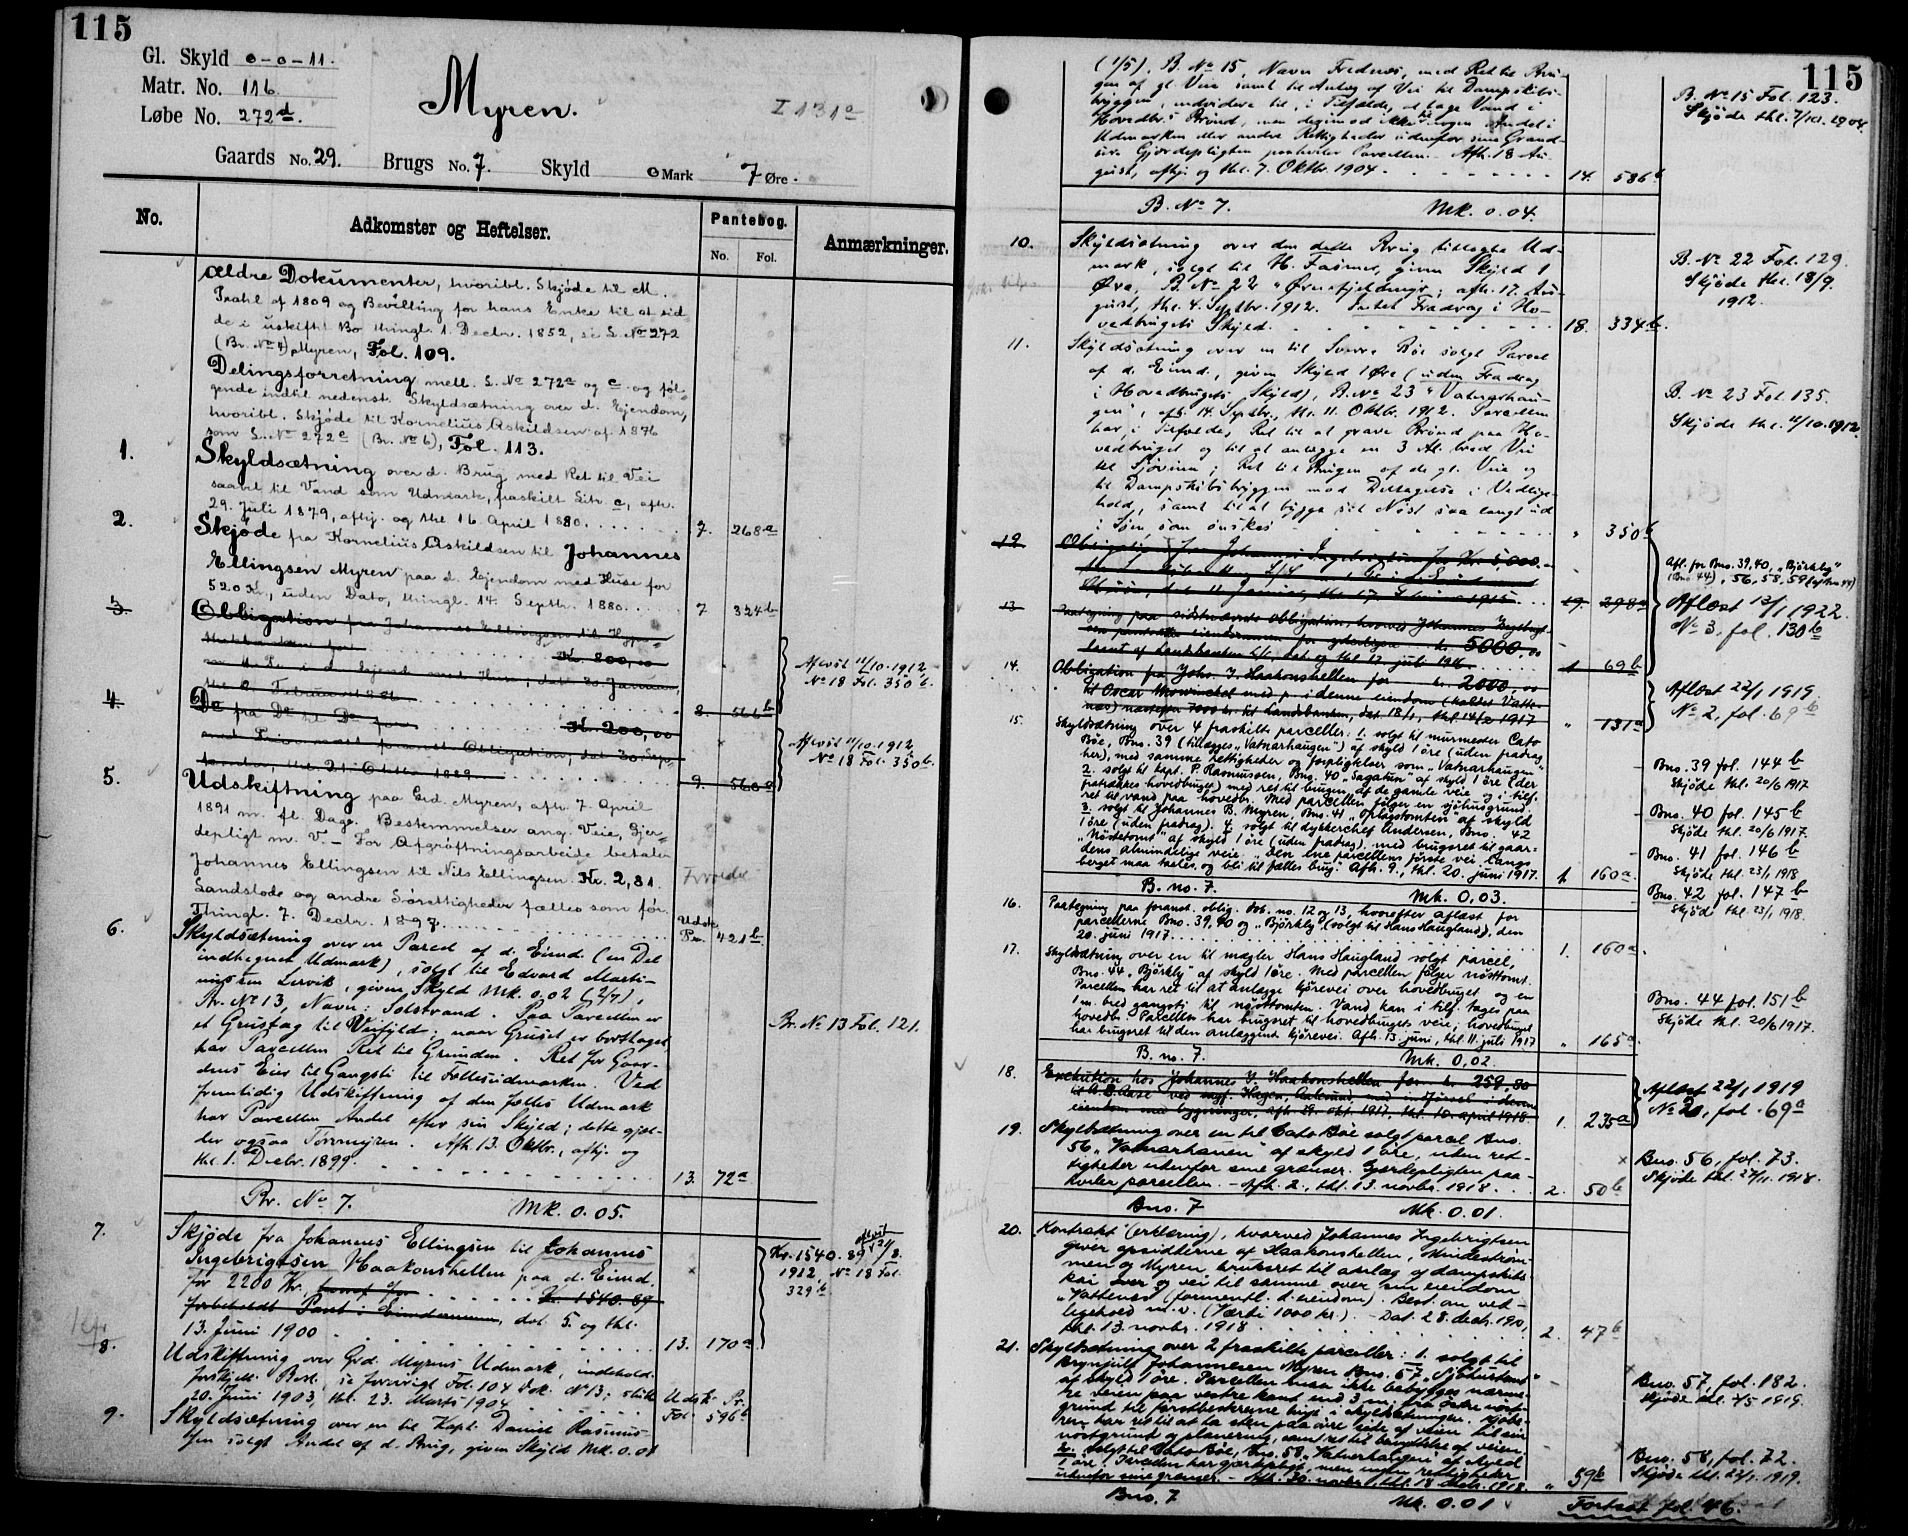 115
Gl. Skyld 0-0-11.
Matr. No. 116
Løbe No. 272d.
Myren.
I 131a
Gaards No. 29. Brugs No. 7. Skyld 0 Mark 7 Øre.
No.
Adkomster og Heftelser.
Pantebog.
No. Fol.
Anmærkninger.
Ældre Dokumenter, hvoribl. Skjøde til M.
Prahl af 1809 og Bevilling for hans Enke til at sid-
de i uskiftet Bo thingl. 1. Decbr. 1852, se L. No 272
(Br. No 4) Myren, Fol. 109.
Delingsforretning mell. L. No 272a og c og føl-
gende indtil nedenst. Skyldsætning over d. Ejendom,
hvoribl. Skjøde til Kornelius Askildsen af 1876
som L. No 272c (Br. No 6), Fol. 113.
1. Skyldsætning over d. Brug med Ret til Vei
saavel til Vand som Udmark, fraskilt Litr. c, afh.
29. Juli 1879, afhj. og thl. 16. April 1880. 7. 268a
2. Skjøde fra Kornelius Askildsen til Johannes
Ellingsen Myren paa d. Ejendom med Huse for
520 Kr., uden Dato, thingl. 14. Septbr. 1880. 7 324b
3. Obligation fra Johannes Ellingsen til Hypo-
Kr. 800,00
8. 566b
Aflyst 11/10.1912
No 18 Fol. 350b.
4. Do fra Do til Do for Kr. 200,00
med Prior. næst foranst. Obligation, dat. 30. Sep-
tember, thl. 21. Oktbr. 1889. 9. 560a
Aflyst 11/10.1912
No 18 Fol. 350b.
5. Udskiftning paa Grd. Myren, afh. 7. April
1891 m. fl. Dage. Bestemmelser ang. Veie, Gjer-
depligt m. V. - For Afgrøftningsarbeide betaler
Johannes Ellingsen til Nils Ellingsen Kr. 2,81.
Landslode og andre Sørettigheder fælles som før.
Thingl. 7. Decbr. 1897. Udsk. Pr. 421b
6. Skyldsætning over en Parcel af d. Eiend. (en Del
indhegnet Udmark), solgt til Edvard Marti-
nussen Lervik, given Skyld Mk. 0.02 (2/7),
Br. No 13, Navn: Solstrand. Paa Parcellen er
et Grustag til Veifyld; naar Gruset er borttaget,
har Parcellen Ret til Grunden. Ret for Gaar-
dens Eier til Gangsti til Fællesudmarken. Ved
fremtidig Udskiftning af den fælles Udmark
har Parcellen Andel efter sin Skyld; dette gjæl-
der ogsaa Torvmyren. Afh. 13. Oktbr., afhj. og
thl. 1. Decbr. 1899. 13. 72a
Br. No 13 Fol. 121.
Br. No 7. Mk. 0.05.
7. Skjøde fra Johannes Ellingsen til Johannes
Ingebrigtsen Haakonshellen paa d. Eiend.
for 2200 Kr. hvoraf for Kr. 1540.89
forbeholdt Pant i Eiendommen, dat. 5. og thl.
13. Juni 1900 13. 170a
Kr. 1540.89 aflyst
1912, No 18 Fol.
329b
8. Udskiftning over Grd. Myrens Udmark, indehold.
forskjell. Best., se forøvrigt Fol. 104 Dok. No 13, slutt.
20. Juni 1903, thl. 23. Marts 1904. Udsk. Pr. Fol. 596b
9. Skyldsætning over en til Kapt. Daniel Rasmus-
sen solgt Andel af d. Brug, given Skyld Mk. 0.01
115
(1/5), B. No 15, Navn Fredenes, med Ret til Bru-
gen af gl. Veie samt til Anlæg af Vei til Dampskibs-
bryggen, endvidere til, i Tilfælde, at tage Vand i
Hovedbr.s Brønd, men derimod ikke til nogen Andel i
Udmarken eller andre Rettigheder udenfor sine Grænd-
ser. Gjerdepligten paahviler Parcellen. Afh. 18. Au-
gust, afhj. og thl. 7. Oktbr. 1904. 14. 586b
B. No 15 Fol. 123.
Skjøde thl. 7/10.1904
B. No 7. Mk. 0.04.
10. Skyldsætning over den dette Brug tillagte Ud-
mark, solgt til H. Fasmer, given Skyld 1
Øre, B. No 22 "Ørnefjeldmyr", afh. 17. Au-
gust, thl. 4. Septbr. 1912. Intet Fradrag i Ho-
vedbrugets Skyld. 18. 334b.
B. No 22 Fol. 129.
Skjøde thl. 18/9.
1912.
11. Skyldsætning over en til Sverre Bøe solgt Parcel
af d. Eiend., given Skyld 1 Øre (uden Fradrag
i Hovedbrugets Skyld), B. No 23 "Vatnarhau-
gen", afh. 14. Septbr., thl. 11. Oktbr. 1912. Parcellen
har, i Tilfælde, Ret til at grave Brønd paa Ho-
vedbruget og til at anlægge en 3 Al. bred Vei
til Sjøveien; Ret til Brugen af de gl. Veie og
til Dampskibsbryggen mod Deltagelse i Vedlige-
hold, samt til at bygge sit Nøst saa langt ud
i Søen som ønskes " 350b
B. No 23 Fol. 135.
Skjøde thl. 11/10.1912.
12. Obligation fra Johannes Ingebrigtsen for Kr. 5,000.
19. 298a
Afl. for Bno. 39, 40, "Bjørkly"
(Bno. 44), 56, 58, 59
Aflæst 13/1 1922
No 3, fol. 130b
13. Paategning paa sidstnævnte obligation, hvorved Johannes Ingebrigt-
kr. 5000,00
1 69b
14. Obligation fra Johs. I. Haakonshellen for kr. 2000,00
til Oscar Mowinckel med p. i denne eiendom (kaldet Vatte-
næs) næstefter 7000 kr. til Landsbanken, dat. 18/1, thl. 14/2 1917 " 131a
Aflæst 22/1 1919.
No 2, fol. 69b
15. Skyldsætning over 4 fraskilte parceller: 1. solgt til murmester Cato
Bøe, Bno. 39 (tillægges "Vatnarhaugen") af skyld 1 øre (uden fradrag
her), med samme rettigheder og forpligtelser som "Vatnarhaugen"
2. solgt til kapt. P. Rasmussen, Bno. 40 "Sagatun" af skyld 1 øre (der
fratrækkes hovedbruget) med ret til brugen af de gamle veie og i tilf.
ret til vand paa hovedbr. Med parcellen følger en sjøhusgrund.
3. solgt til Johannes B. Myren, Bno. 41 "Oplagstomten" af skyld
1 øre (uden fradrag). 4. solgt til dykkerchef Andersen, Bno. 42
"Nøstetomt" af skyld 1 øre (uden fradrag), med brugsret til gaar-
dens almindelige veie. Den ene parcellens første vei langs
berget maa taales og bli til fælles brug. Afh. 9., thl. 20. juni 1917. 1. 160a
Bno. 39 fol. 144b
Skjøde thl. 20/6 1917
Bno. 40 fol. 145b
Skjøde thl. 20/6 1917.
Bno. 41 fol. 146b
Skjøde thl. 23/1 1918
Bno. 42 fol. 147b
Skjøde thl. 23/1 1918.
B. no. 7. Mk. 0,03.
16. Paategning paa foranst. oblig. dok. no. 12 og 13, hvorefter aflæst for
parcellerne Bno. 39, 40 og "Bjørkly" (solgt til Hans Haugland), den
20. juni 1917. 1. 160a
17. Skyldsætning over en til mægler Hans Haugland solgt parcel,
Bno. 44 "Bjørkly" af skyld 1 øre. Med parcellen følger nøsttomt.
Parcellen har ret til at anlægge kjørevei over hovedbruget og en
1 m. bred gangsti til nøsttomten. Vand kan i tilf. tages paa
hovedbr. Parcellen har brugsret til hovedbrugets veie; hovedbruget
har brugsret til den anlæggende kjørevei. Afh. 13. juni, thl. 11. juli 1917 " 165a
Bno. 44 fol. 151b
Skjøde thl. 20/6 1917.
B. no. 7. Mk. 0,02.
18. Exekution hos Johannes I. Haakonshellen for kr. 259,80
eiendom med bygninger, afh. 29. okt. 1917, thl. 10. april 1918. 1. 235a
Aflæst 22/1 1919
No 20, fol. 69a
19. Skyldsætning over en til Cato Bøe solgt parcel Bno.
56 "Vatnarhaven" af skyld 1 øre, uten ret-
tigheder utenfor sine grænser. Gjerdepligten paa-
hviler parcellen. - Afh. 2., thl. 13. novbr. 1918. 2. 50b
Bno. 56, fol. 73.
Skjøde thl. 27/11 1918.
Bno. 7 Mk. 0.01.
20. Kontrakt (erklæring), hvorved Johannes Ingebrigtsen
giver opsidderne af Haakonshellen, Mindestrøm-
men og Myren bruksret til anlæg af dampskibs-
kai over og vei til samme over sin eiendom
"Vattenæs" (formentl. d. eiendom). Best. om ved-
likehold m. v. (Værdi 1000 kr.). - Dat. 28. decbr. 190,
thl. 13. novbr. 1918. 2. 47b
21. Skyldsætning over 2 fraskilte parceller: 1. solgt til
Brynjulf Johannesen Myren Bno. 57 "Sjøhustomt"
af skyld 1 øre. Parcellen maa ikke bebygges nærme-
re veien paa vestre kant end 3 m.
2. solgt til Cato Bøe, Bno. 58 "Vatnerhaugen" af skyld
1 øre. Parcellen har gjerdepligt, men ingen rettigheder
utenfor sine grænser. - Afh. 30. novbr., thl. 18. decbr. 1918. " 59b
Bno. 57, fol. 182.
Skjøde thl. 2/5 1919.
Bno. 58, fol. 72.
Skjøde thl. 22/1. 1919.
Bno. 7 Mk. 0.01
Fortsat fol. 46.